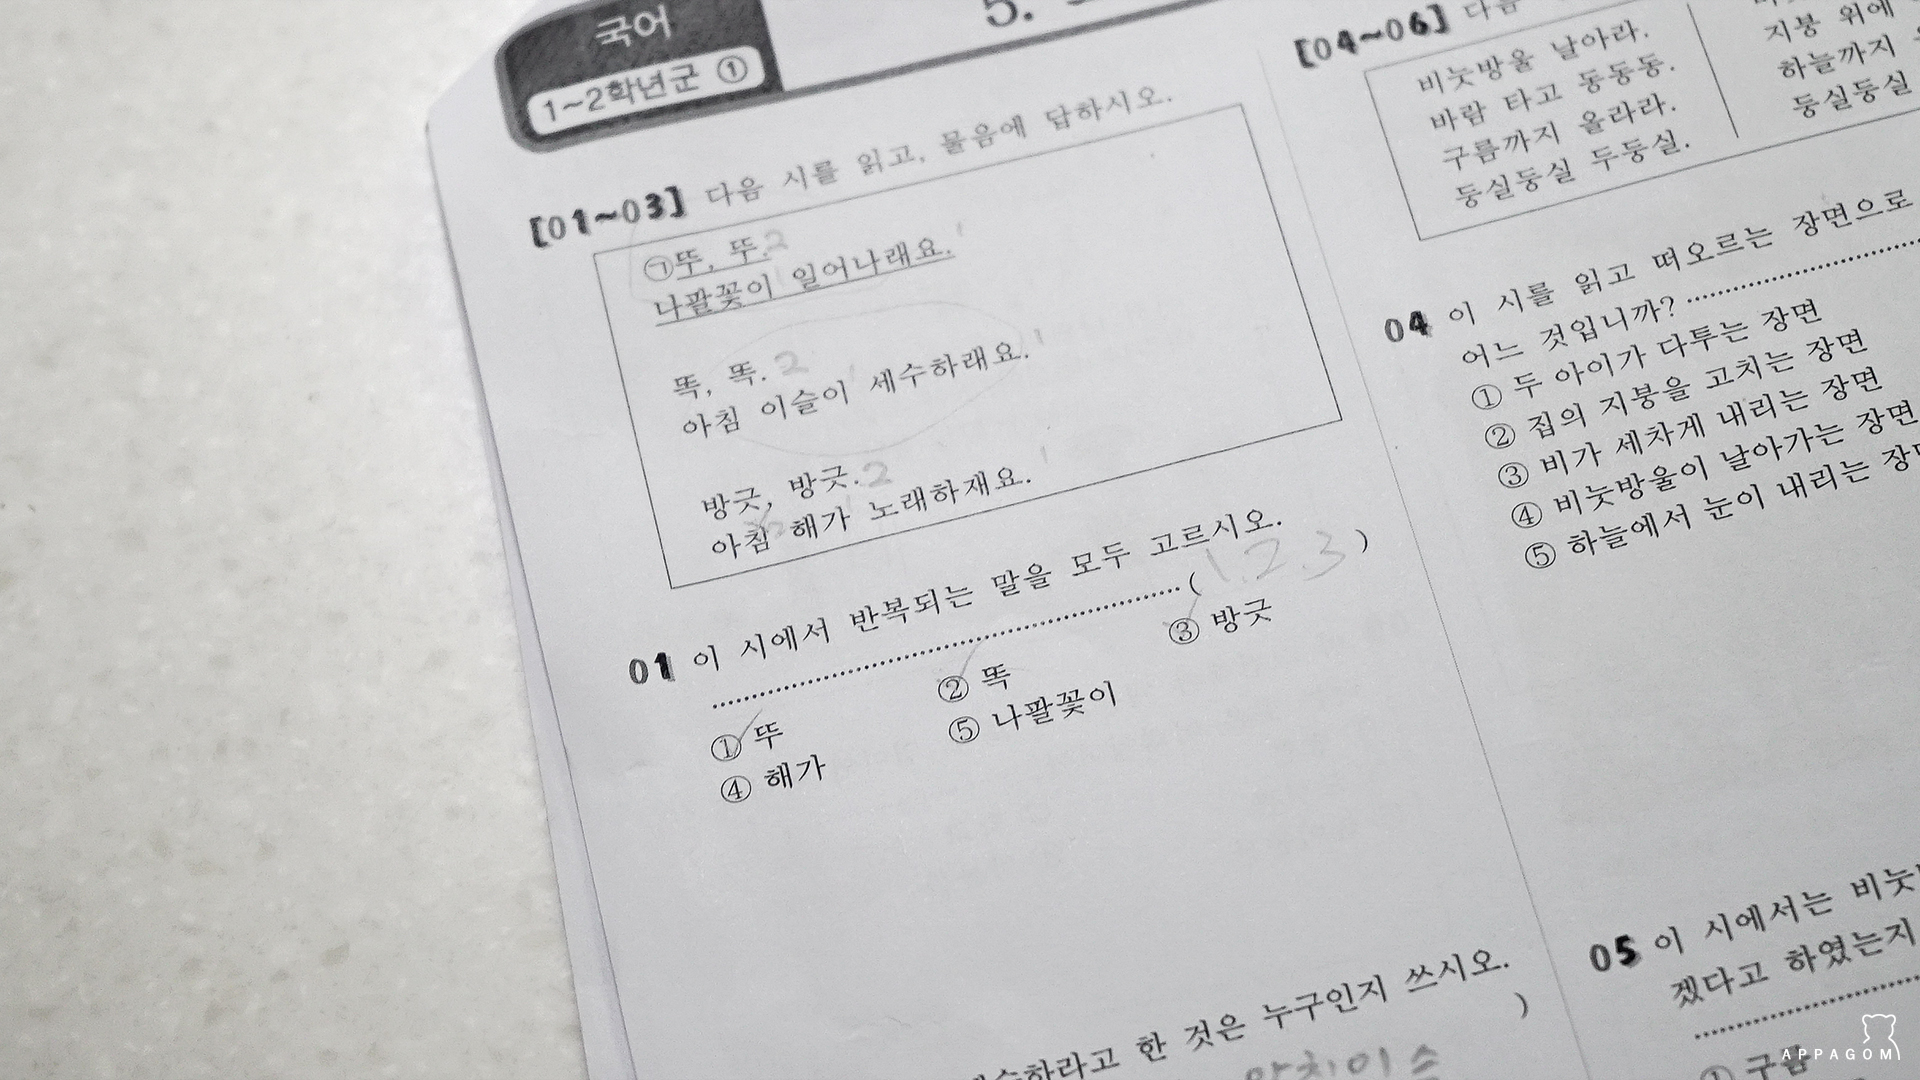 국어
1~2학년군 ①
5.
[01~03] 다음 시를 읽고, 물음에 답하시오.
㉠뚜, 뚜. 2
나팔꽃이 일어나래요. 1
똑, 똑. 2
아침 이슬이 세수하래요. 1
방긋, 방긋. 2
아침 해가 노래하재요. 1
01 이 시에서 반복되는 말을 모두 고르시오.
( 1. 2. 3 )
① 뚜
② 똑
③ 방긋
④ 해가
⑤ 나팔꽃이
수하라고 한 것은 누구인지 쓰시오.
)
[04~06] 다음
비눗방울 날아라.
바람 타고 동동동.
구름까지 올라라.
둥실둥실 두둥실.
지붕 위에
하늘까지
둥실둥실
04 이 시를 읽고 떠오르는 장면으로
어느 것입니까?
① 두 아이가 다투는 장면
② 집의 지붕을 고치는 장면
③ 비가 세차게 내리는 장면
④ 비눗방울이 날아가는 장면
⑤ 하늘에서 눈이 내리는 장면
05 이 시에서는 비눗
겠다고 하였는지
① 구름
APPAGOM